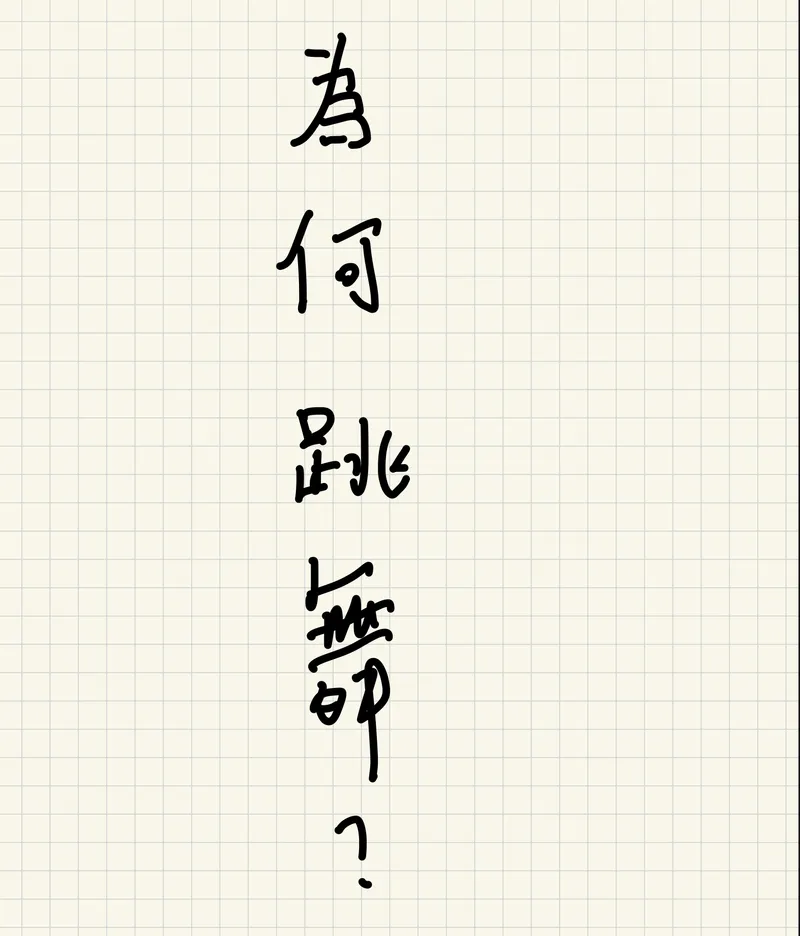 為何跳舞？